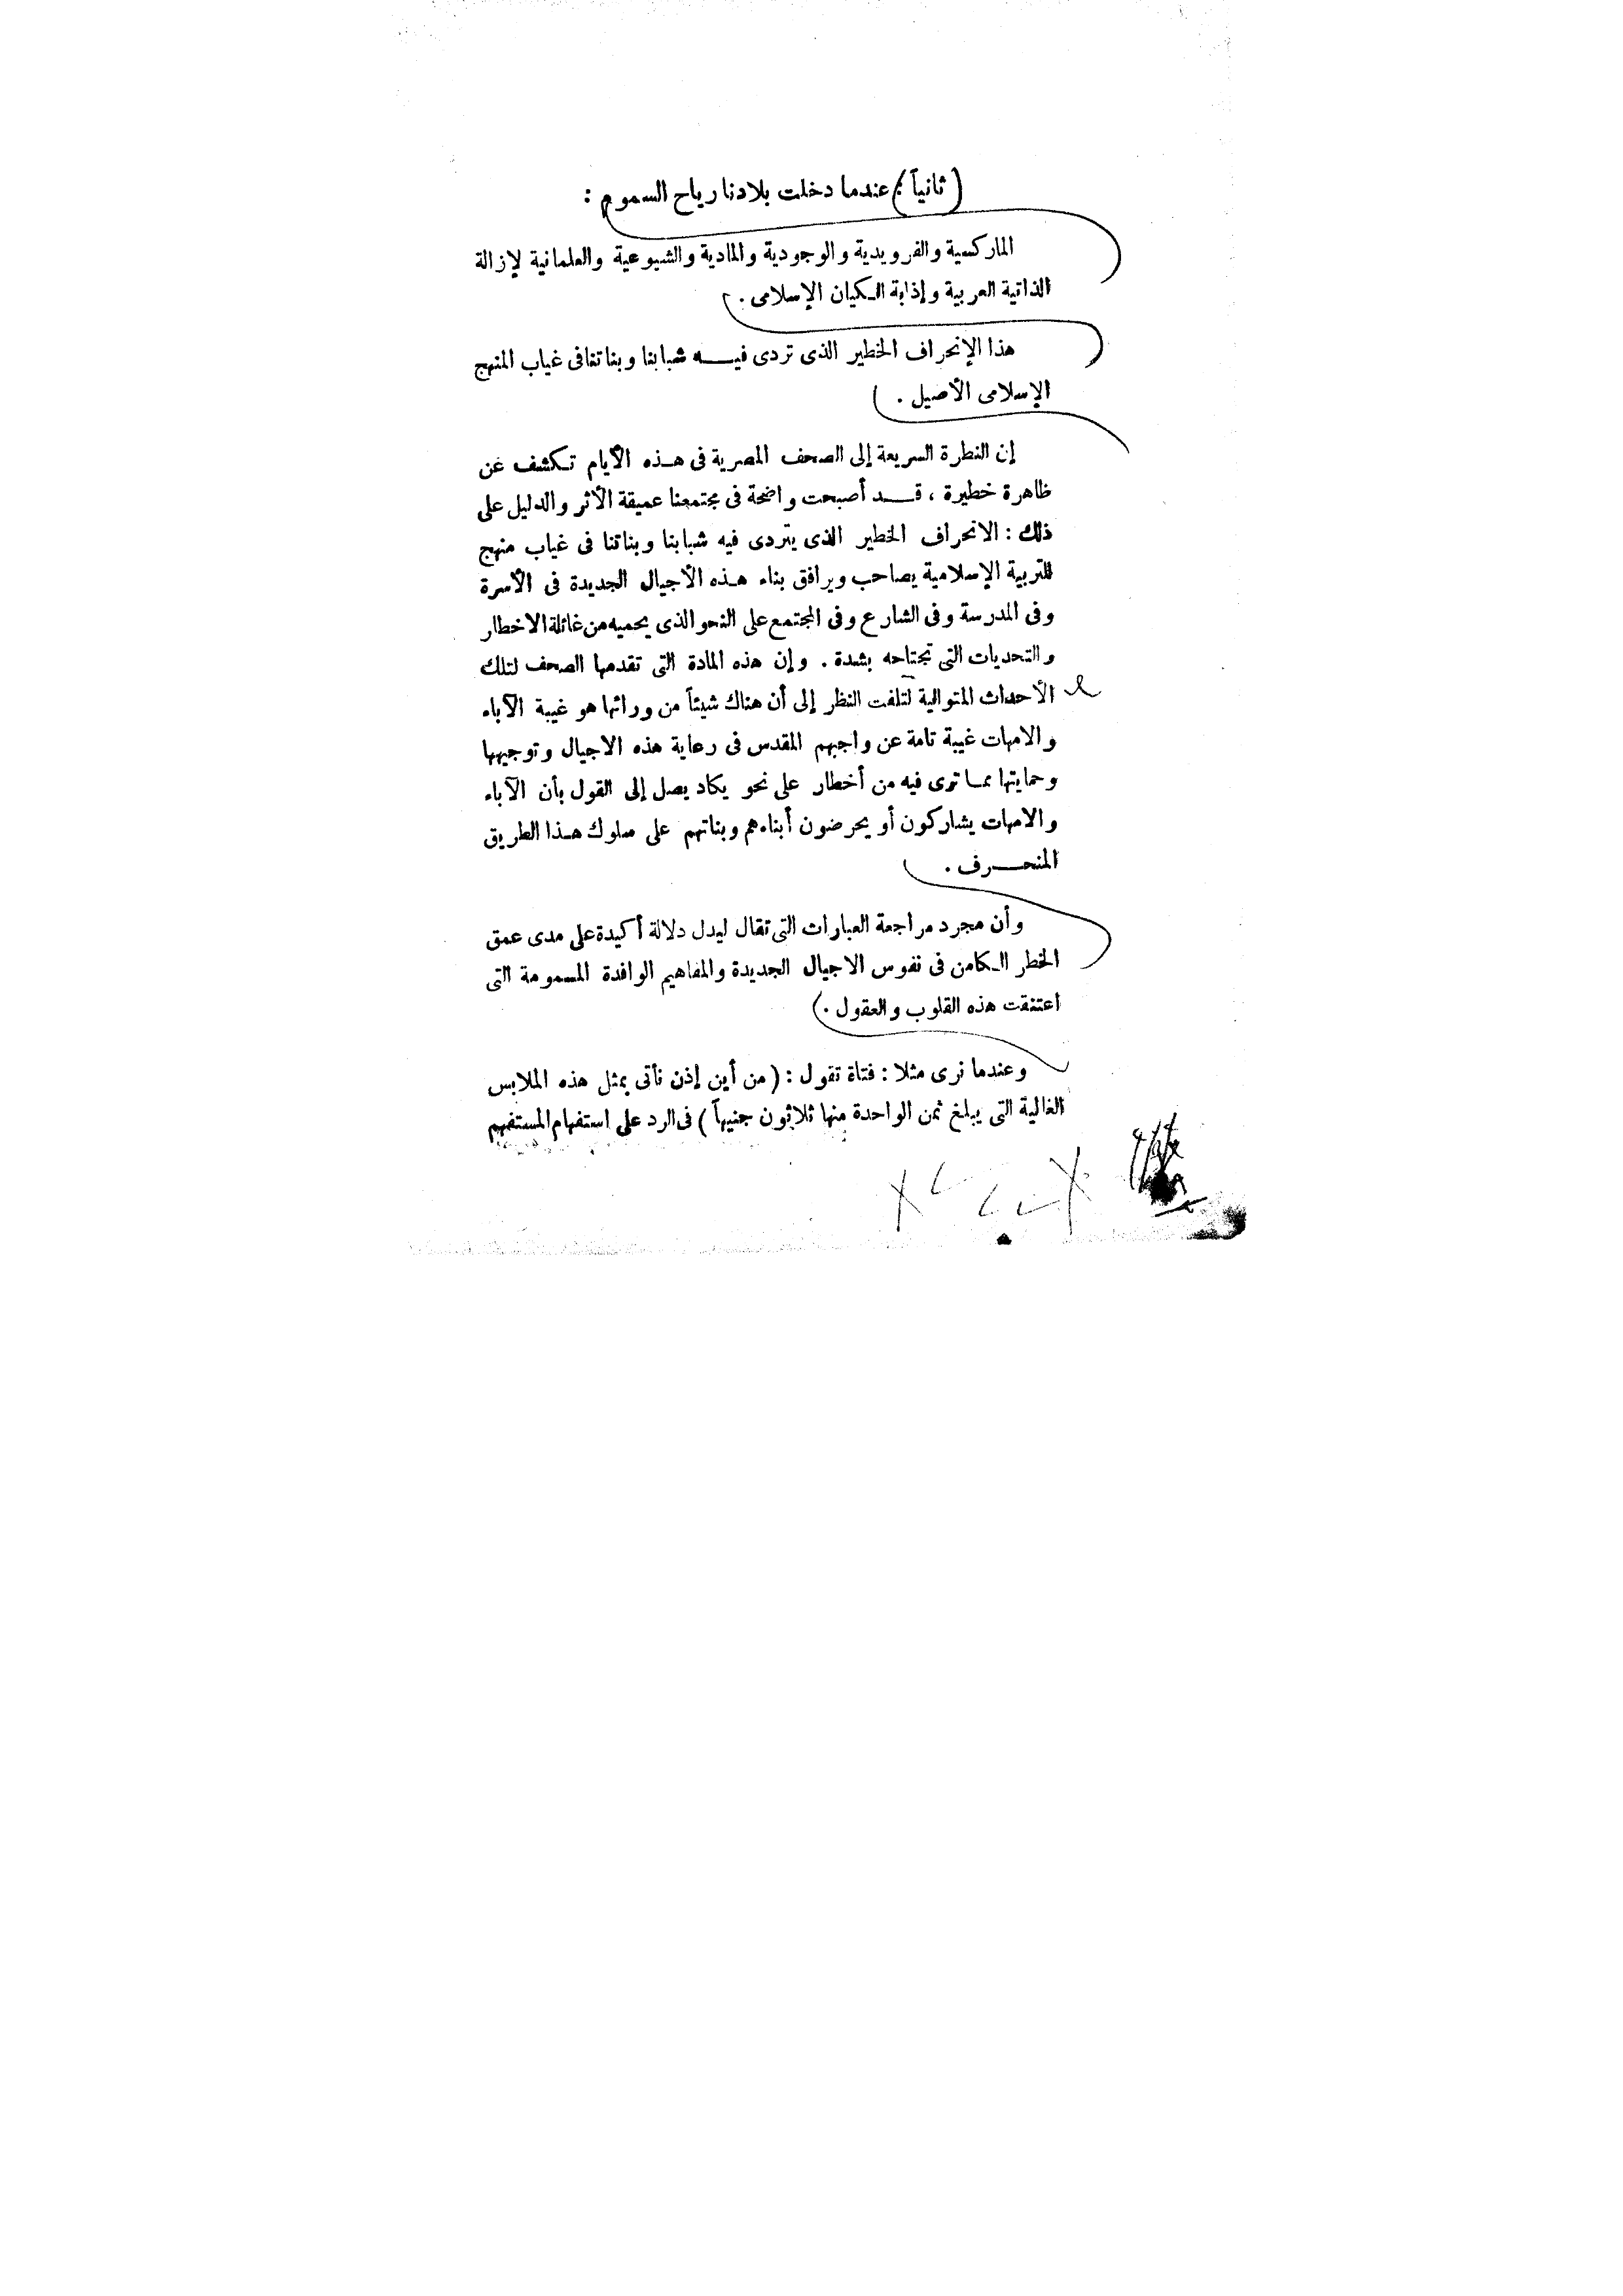 ( ثانياً ) : عندما دخلت بلادنا رياح السموم :
الماركسية والفرويدية والوجودية والمادية والشيوعية والعلمانية لإزالة
الذاتية العربية وإذابة الكيان الإسلامى .
هذا الإنحراف الخطير الذى تردى فيه شبابنا وبناتنا فى غياب المنهج
الإسلامى الأصيل .
إن النظرة السريعة إلى الصحف المصرية فى هذه الأيام تكشف عن
ظاهرة خطيرة ، قد أصبحت واضحة فى مجتمعنا عميقة الأثر والدليل على
ذلك : الانحراف الخطير الذى يتردى فيه شبابنا وبناتنا فى غياب منهج
للتربية الإسلامية يصاحب ويرافق بناء هذه الأجيال الجديدة فى الأسرة
وفى المدرسة وفى الشارع وفى المجتمع على النحو الذى يحميه من غائلة الاخطار
والتحديات التى تجتاحه بشدة . وإن هذه المادة التى تقدمها الصحف لتلك
الأحداث المتوالية لتلفت النظر إلى أن هناك شيئاً من ورائها هو غيبة الآباء
والامهات غيبة تامة عن واجبهم المقدس فى رعاية هذه الاجيال وتوجيهها
وحمايتها مما ترى فيه من أخطار على نحو يكاد يصل إلى القول بأن الآباء
والامهات يشاركون أو يحرضون أبناءهم وبناتهم على سلوك هذا الطريق
المنحرف .
وأن مجرد مراجعة العبارات التى تقال ليدل دلالة أكيدة على مدى عمق
الخطر الكامن فى نفوس الاجيال الجديدة والمفاهيم الوافدة المسمومة التى
اعتنقت هذه القلوب والعقول .
وعندما نرى مثلا : فتاة تقول : ( من أين إذن نأتى بمثل هذه الملابس
الغالية التى يبلغ ثمن الواحدة منها ثلاثون جنيهاً ) فى الرد على استفهام المستفهم